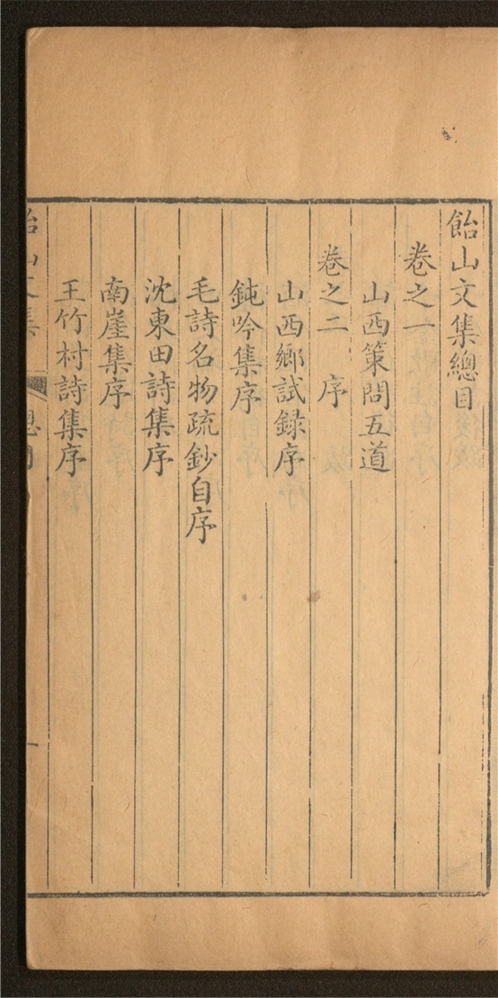 飴山文集總目
卷之一
山西策問五道
卷之二　序
山西鄉試録序
鈍吟集序
毛詩名物疏鈔自序
沈東田詩集序
南崖集序
王竹村詩集序
飴山文集　總目　一